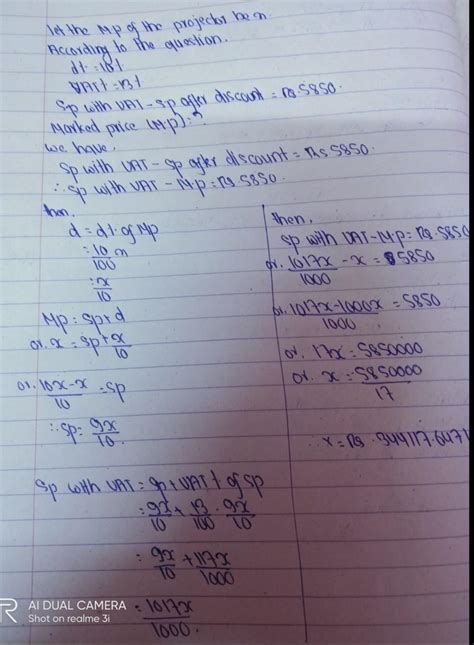 let the Mp of the projector be x.
According to the question.
d% = 10%
VAT% = 13%
Sp with VAT - Sp after discount = Rs 5850.
Marked price (M.p) = ?
We have,
Sp with VAT - Sp after discount = Rs 5850.
∴ Sp with VAT - M.p = Rs 5850.
then,
d = d% of Mp
= 10/100 x
= x/10
Mp = Sp + d
or. x = Sp + x/10
or. 10x-x/10 = Sp
∴ Sp = 9x/10.
then,
Sp with VAT - M.p = Rs. 5850
or. 1017x/1000 - x = 5850
or. 1017x-1000x/1000 = 5850
or. 17x = 5850000
or. x = 5850000/17
∴ x = Rs. 344117.6471
Sp with VAT = Sp + VAT% of Sp
= 9x/10 + 13/100 . 9x/10
= 9x/10 + 117x/1000
= 1017x/1000.
AI DUAL CAMERA
Shot on realme 3i